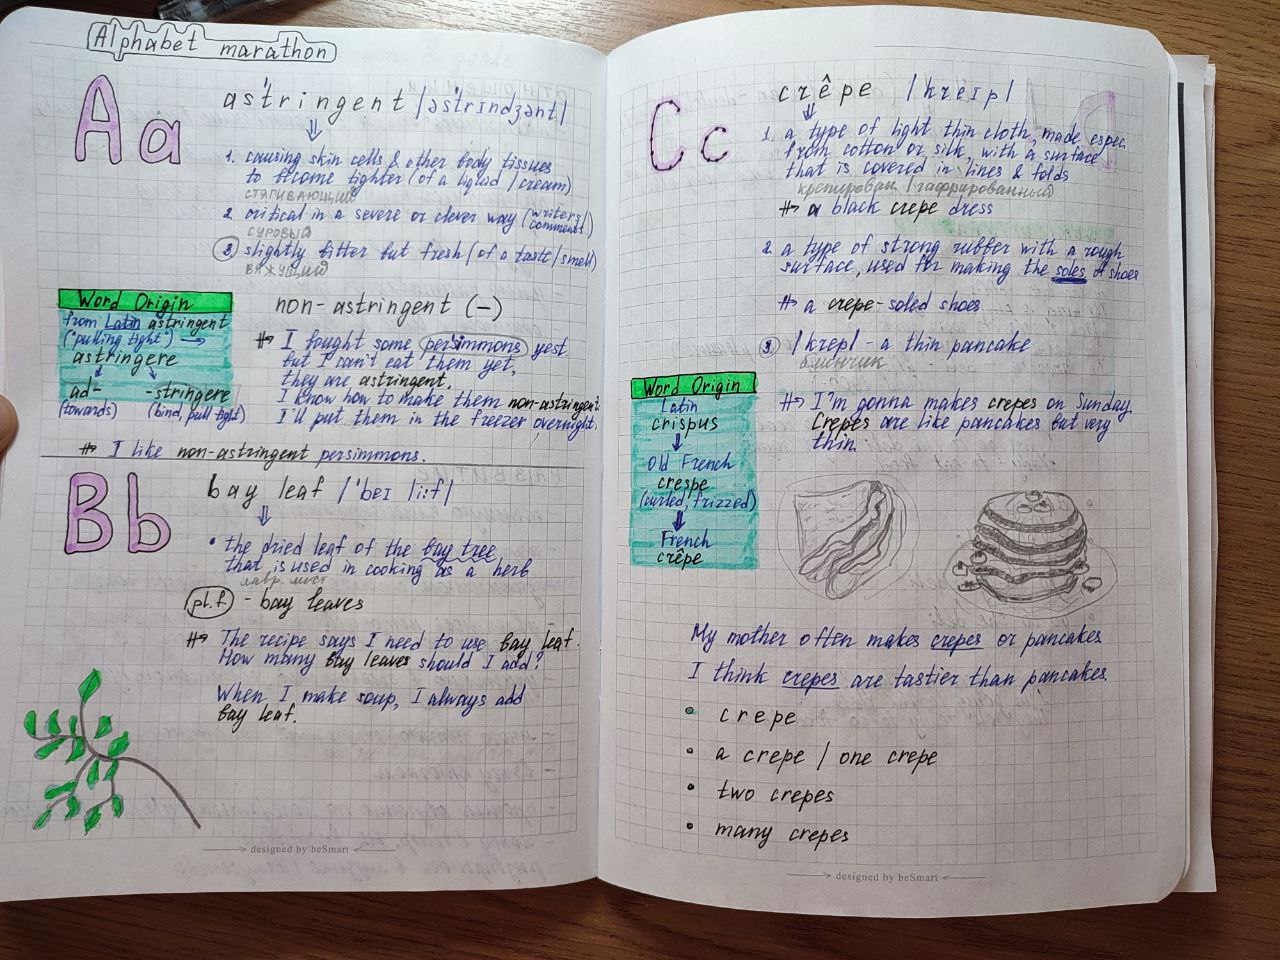 Alphabet marathon
Aa
astringent |ə'strɪndʒənt|
1. causing skin cells & other body tissues
to become tighter (of a liquid / cream)
стягивающий
2. critical in a severe or clever way (writers/
comment)
суровый
3. slightly bitter but fresh (of a taste/smell)
вяжущий
Word Origin
from Latin astringent
("pulling tight") →
astringere
ad- -stringere
(towards) (bind, pull tight)
non-astringent (–)
I bought some persimmons yest.
but I can't eat them yet,
they are astringent.
I know how to make them non-astringent.
I'll put them in the freezer overnight.
I like non-astringent persimmons.
Bb
bay leaf |'beɪ li:f|
• the dried leaf of the bay tree
that is used in cooking as a herb
лавр. лист
pl.f - bay leaves
The recipe says I need to use bay leaf.
How many bay leaves should I add?
When I make soup, I always add
bay leaf.
designed by beSmart
Cc
crêpe |kreɪp|
1. a type of light thin cloth, made espec.
from cotton or silk, with a surface
that is covered in lines & folds
/ гафрированный
a black crepe dress
2. a type of strong rubber with a rough
surface, used for making the soles of shoes
a crepe-soled shoes
3. |krep| - a thin pancake
блинчик
I'm gonna makes crepes on Sunday.
Crepes are like pancakes but very
thin.
Word Origin
Latin
crispus
Old French
crespe
(curled, frizzed)
French
crêpe
My mother often makes crepes or pancakes
I think crepes are tastier than pancakes
• crepe
• a crepe / one crepe
• two crepes
• many crepes
designed by beSmart